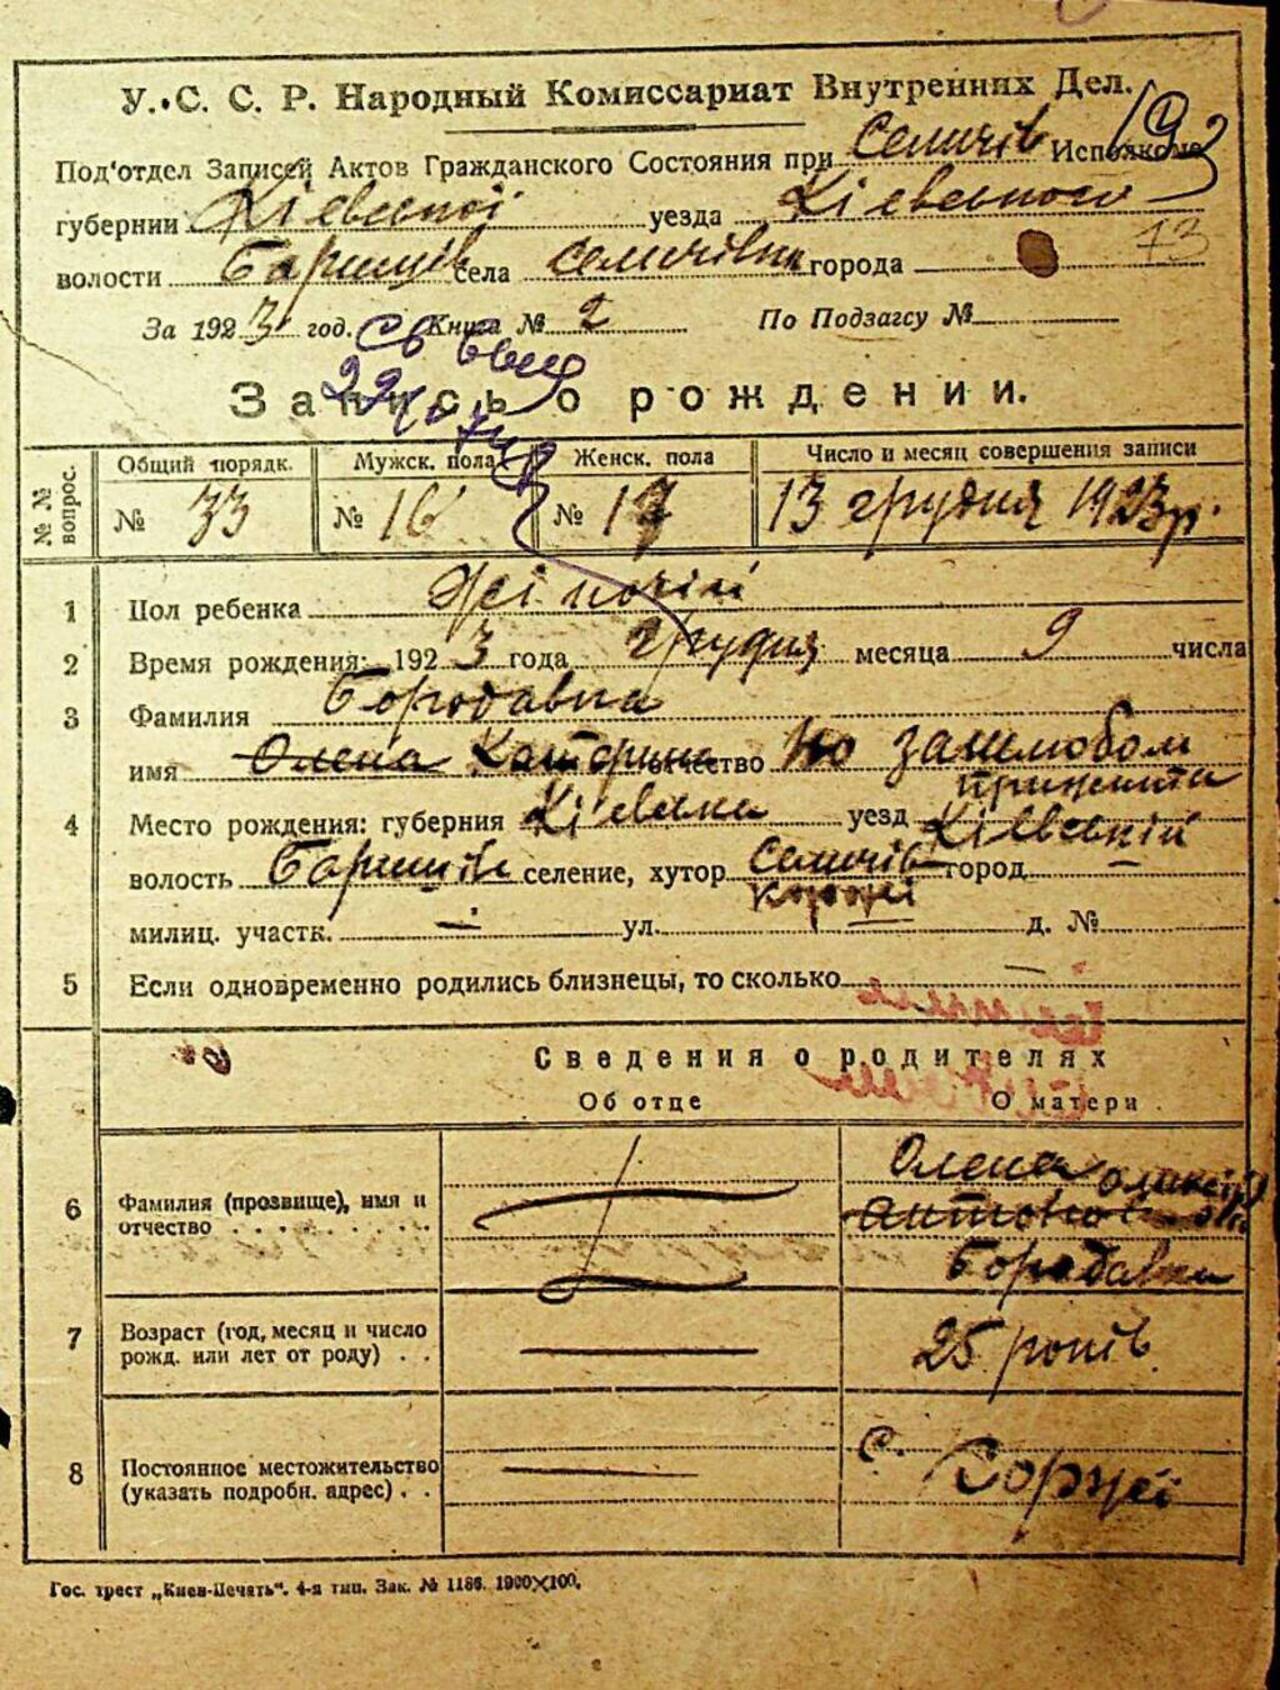 У. С. С. Р. Народный Комиссариат Внутренних Дел.
Под'отдел Записей Актов Гражданского Состояния при Семичів Исполкоме
губернии Київської уезда Київського
волости Баришів села города
За 1923 год. Книга № 2 По Подзагсу №
13
Запись о рождении.
№ № вопрос. Общий порядк. Мужск. пола Женск. пола Число и месяц совершения записи
№ 33 № 16 № 17 13 грудня 1923 р.
1 Пол ребенка Жіночій
2 Время рождения: 1923 года грудня месяца 9 числа
3 Фамилия Бородавка
имя Олена Катерина отчество по
4 Место рождения: губерния уезд
волость Баришів селение, хутор Семичів город
Коржі
милиц. участк. — ул. — д. №
5 Если одновременно родились близнецы, то сколько —
Сведения о родителях
Об отце О матери
6 Фамилия (прозвище), имя и отчество Олена
Бородавка
7 Возраст (год, месяц и число рожд. или лет от роду) — 25 років
8 Постоянное местожительство (указать подробн. адрес) — с. Коржі
Гос. трест „Киев-Печать". 4-я тип. Зак. № 1186. 1900×100.